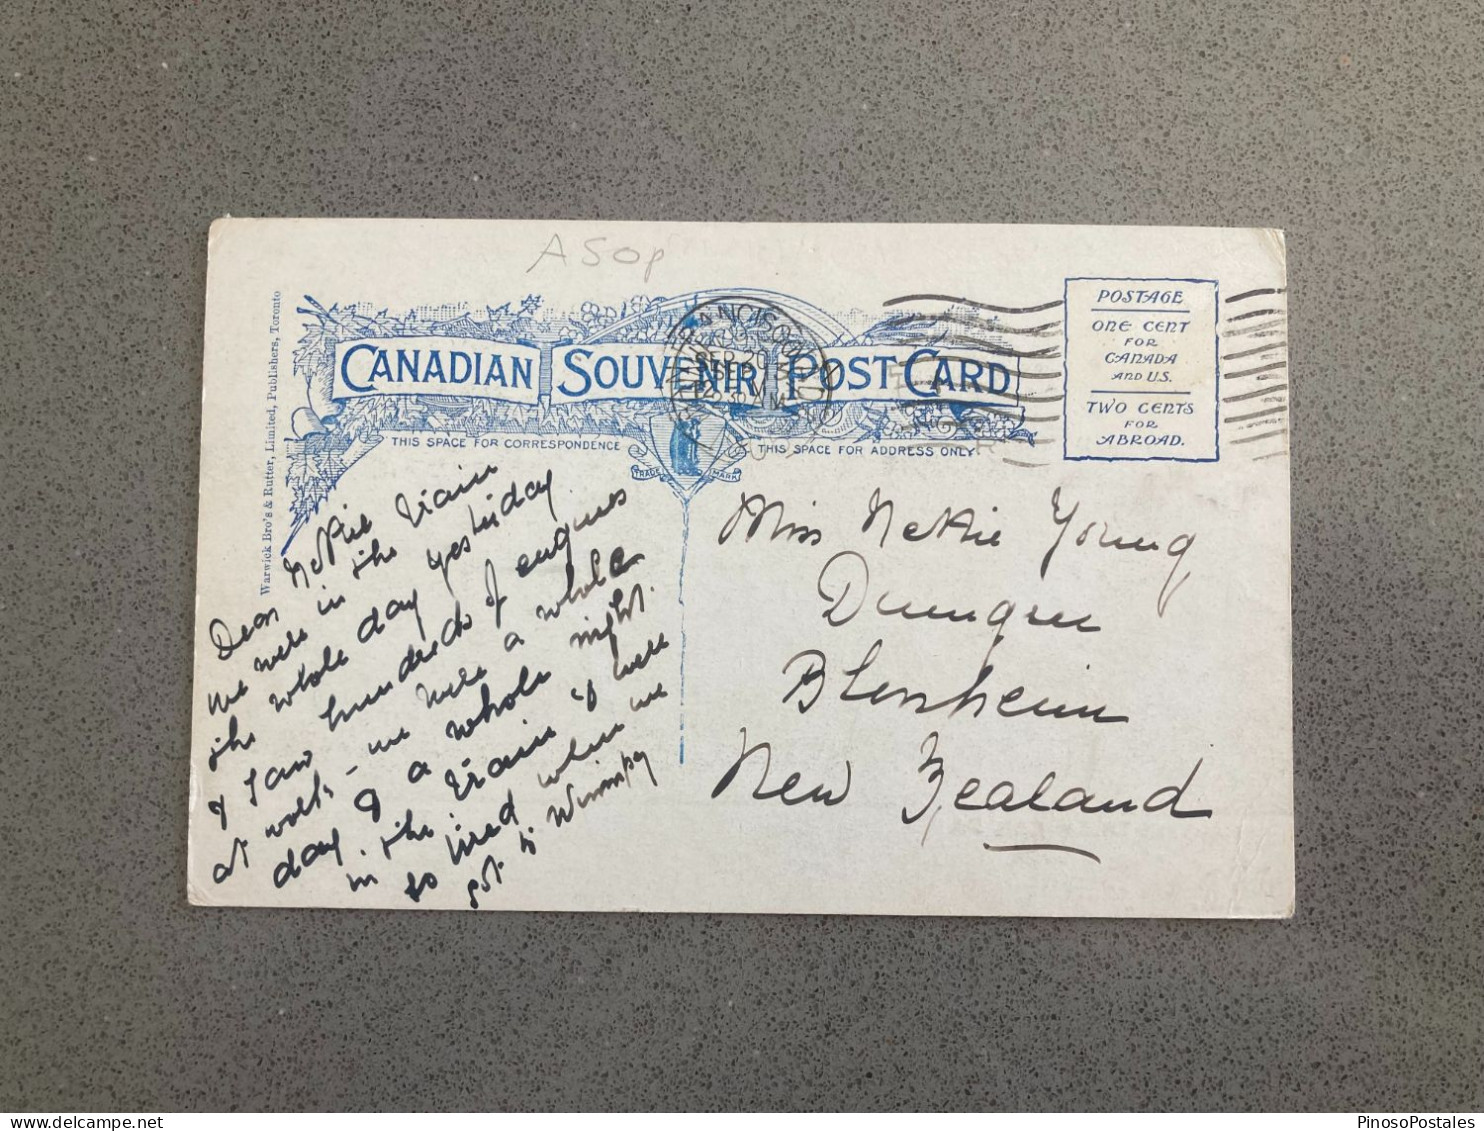 A 50p
Warwick Bro's & Rutter, Limited, Publishers, Toronto
CANADIAN SOUVENIR POST CARD
THIS SPACE FOR CORRESPONDENCE
THIS SPACE FOR ADDRESS ONLY
TRADE MARK
SEP 20
12 30 AM
POSTAGE
ONE CENT
FOR
CANADA
AND U.S.
TWO CENTS
FOR
ABROAD.
Dear Nettie
we were in the train
the whole day yesterday
& I saw hundreds of engines
at work - we were a whole
day & a whole night
in the train & were
so tired when we
got to Winnipeg
Miss Nettie Young
Blenheim
New Zealand
PinosoPostales